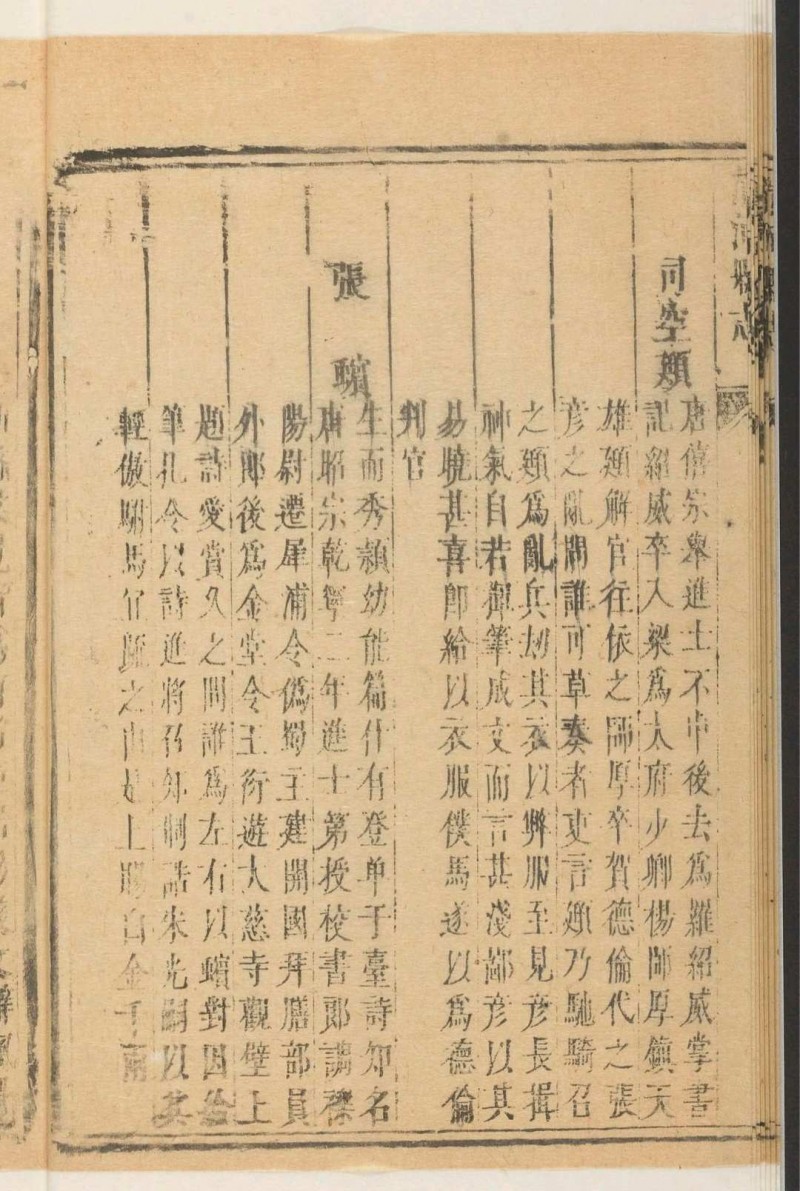 司空頲
唐僖宗舉進士不中後去為羅紹威掌書
記紹威卒入梁為太府少卿楊師厚鎮天
雄頲解官往依之師厚卒賀德倫代之張
彦之亂問誰可草奏者吏言頲乃馳騎召
之頲為亂兵刼其衣以弊服至見彦長揖
神氣自若揮筆成文而言甚淺鄙彦以其
易曉甚喜即給以衣服僕馬遂以為德倫
判官
張蠙
生而秀頴幼能篇什有登单于臺詩知名
唐昭宗乾寧二年進士第授校書郎調櫟
陽尉遷犀浦令偽蜀主建開國拜膳部員
外郎後為金堂令王衍遊大慈寺觀壁上
題詩愛賞久之問誰為左右以蠙對因給
筆札令以詩進將召知制誥朱光嗣以其
輕傲駙馬宜踈之由是止賜白金千兩